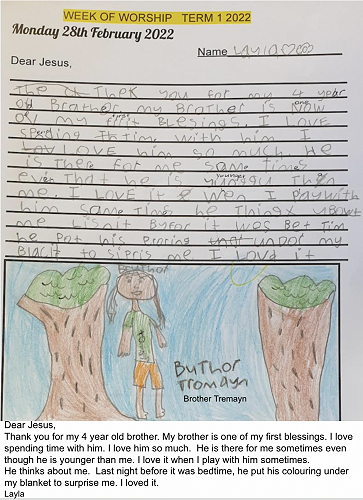 WEEK OF WORSHIP TERM 1 2022
Monday 28th February 2022
Name Layla
Dear Jesus,
The Thek you for my 4 year
old Brother. my Brother is one
of my first Blesings. I LOVE
spending tim with him I
LOVE him so much. He
is there for me some times
even that he is younger then
me. I LOVE it wen I PLay with
him some times he Thingx abowt
me. Bed tim
he Pot his under my
to me I Loved it
Buthor
Tromayn
Brother Tremayn
Dear Jesus,
Thank you for my 4 year old brother. My brother is one of my first blessings. I love
spending time with him. I love him so much. He is there for me sometimes even
though he is younger than me. I love it when I play with him sometimes.
He thinks about me. Last night before it was bedtime, he put his colouring under
my blanket to surprise me. I loved it.
Layla